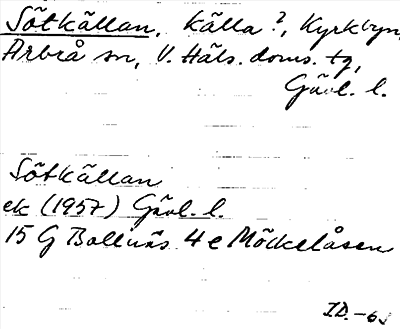 Sötkällan, källa?, Kyrkbyn,
Arbrå sn, V. Häls. doms. tg,
Gävl. l.
Sötkällan
ek (1957) Gävl. l.
15 G Bollnäs 4 e Möckelåsen
I.D. -6